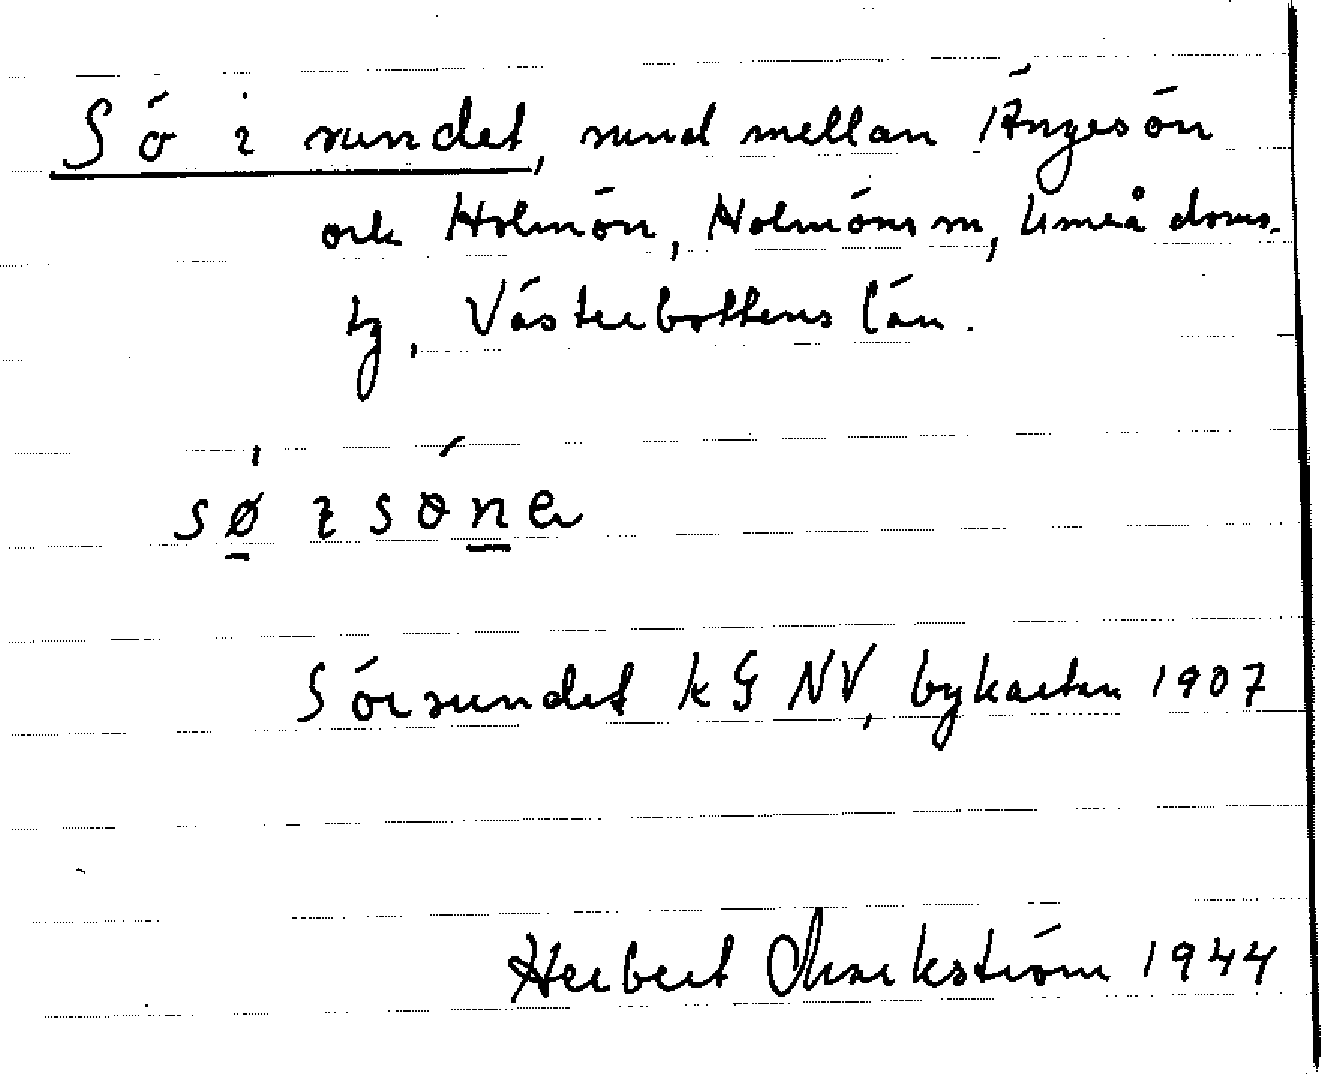 Sö i sundet, sund mellan Ängesön
och Holmön, Holmöns sn, Umeå doms-
tg, Västerbottens län.
Sörsundet k G NV, bykartan 1907
Herbert Markström 1944